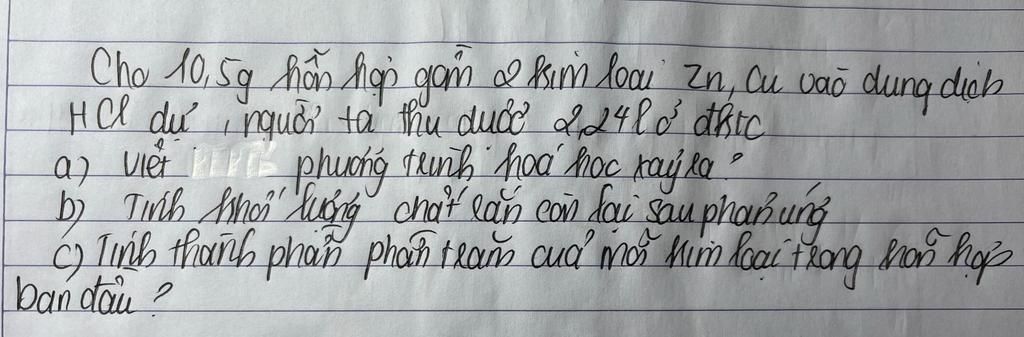 Cho 10,5g hỗn hợp gồm 2 kim loại Zn, Cu vào dung dịch
HCl dư, người ta thu được 2,24l ở đktc
a) Viết phương trình hoá học xảy ra?
b) Tính khối lượng chất rắn còn lại sau phản ứng
c) Tính thành phần phần trăm của mỗi kim loại trong hỗn hợp
ban đầu?